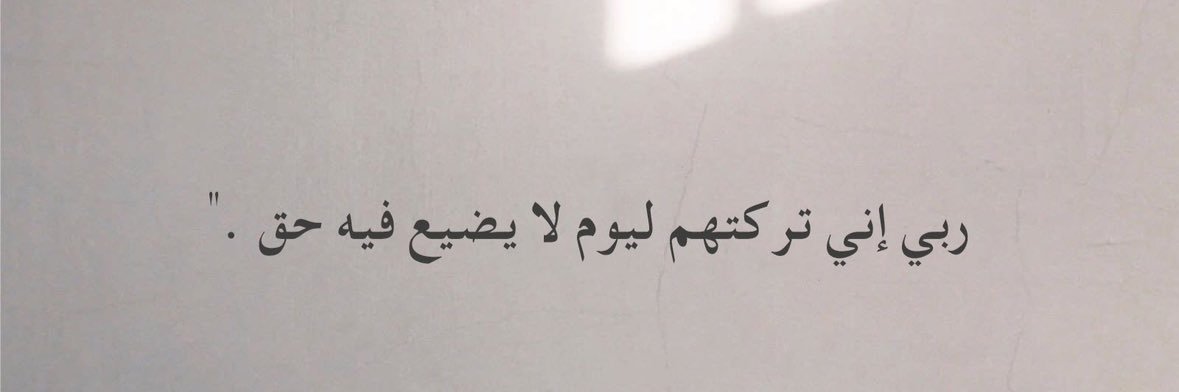 ربي إني تركتهم ليوم لا يضيع فيه حق . "